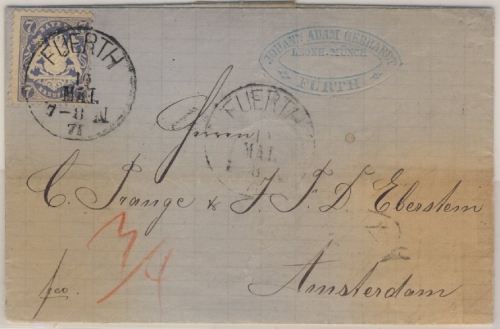 7 7
7 7
FUERTH
16
MAI.
7-8 N
71
JOHANN ADAM GERHARDT
FÜRTH
FUERTH
MAI.
8
Herren
C. Prange & J. F. D. Eberstein
3/4
Amsterdam
fco.